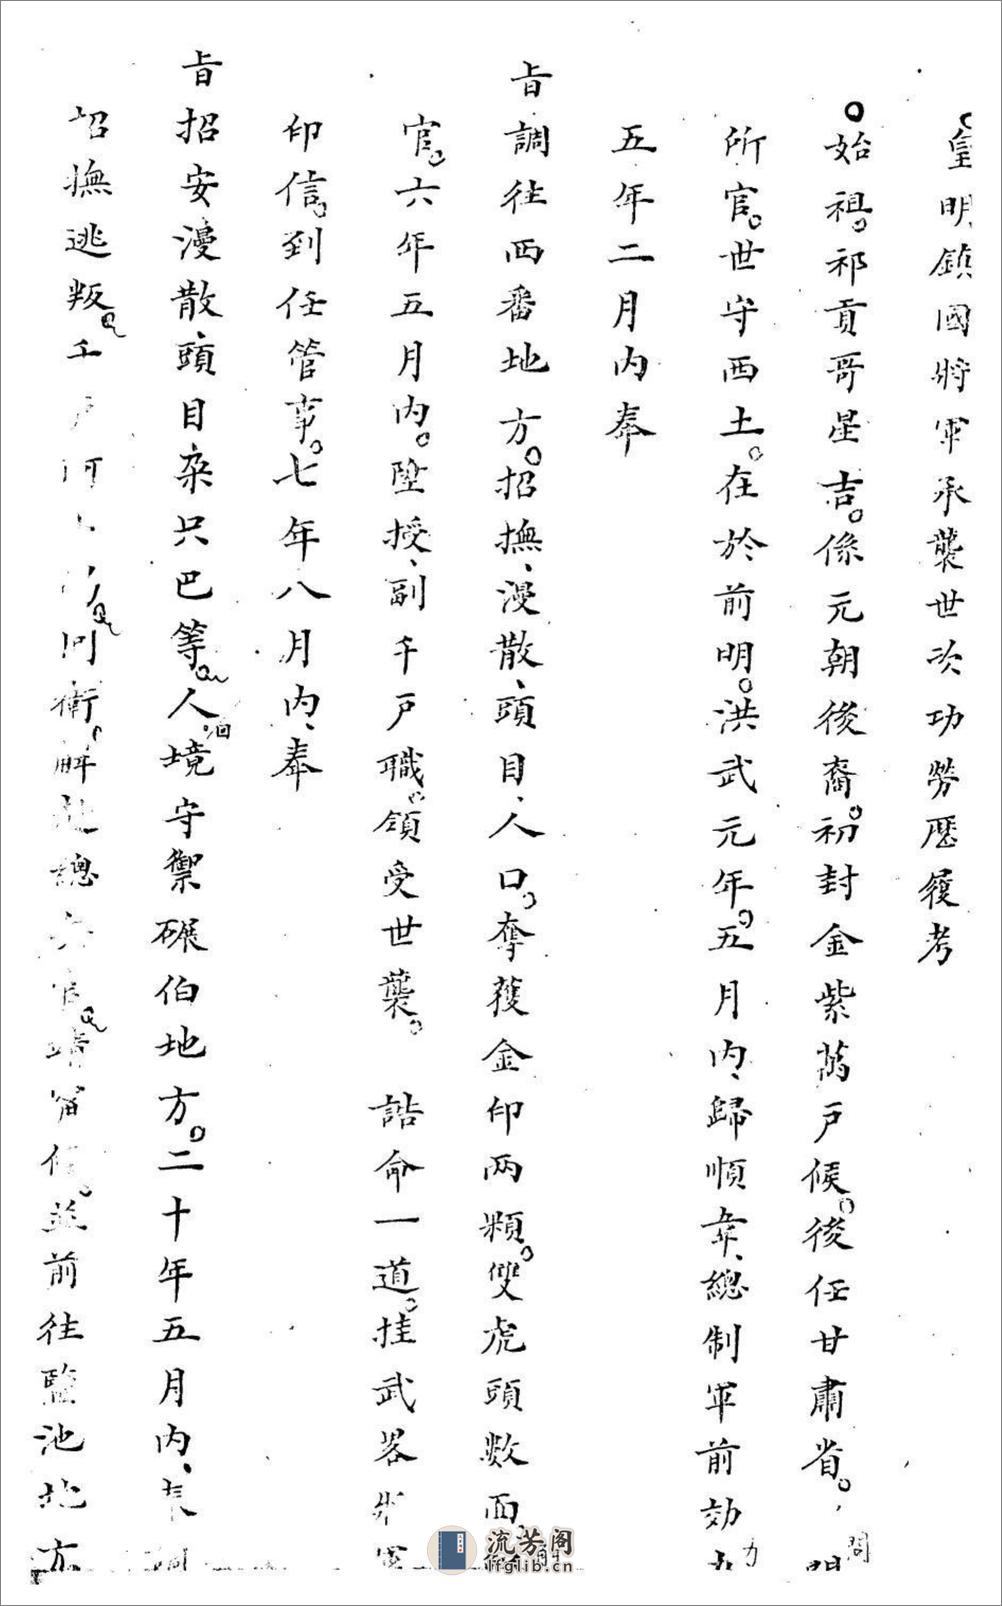 皇明鎮國將軍承襲世次功勞歷履考
始祖祁貢哥星吉係元朝後裔初封金紫萬户侯後任甘肅省
所官世守西土在於前明洪武元年五月内歸順韋總制軍前効力
五年二月内奉
旨調往西番地方招撫漫散頭目人口奪獲金印两顆雙虎頭數面
官六年五月内陞授副千户職領受世襲 誥命一道挂武畧
印信到任管事七年八月内奉
旨招安漫散頭目朶只巴等人回境守禦碾伯地方二十年五月内
招撫逃叛 衛解赴總 並前往鹽池地方
流芳阁
lfglib.cn